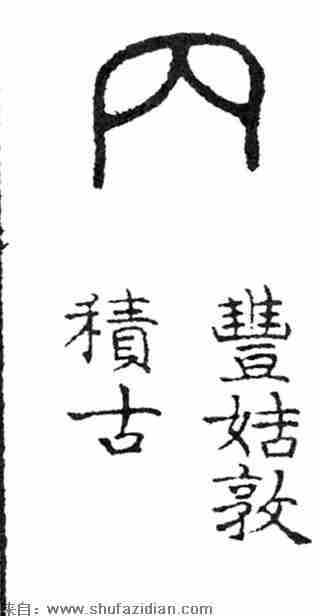 内
豐姞敦
積古
来自：www.shufazidian.com